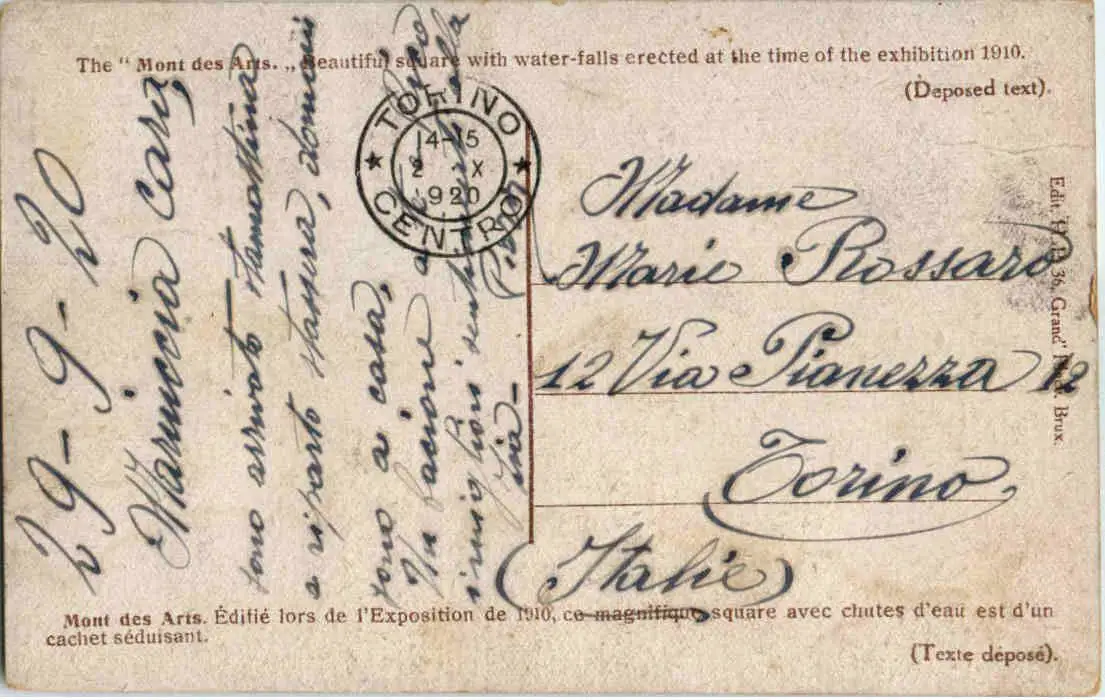 The " Mont des Arts. „ Beautiful square with water-falls erected at the time of the exhibition 1910.
(Deposed text).
29-9-20
Mariuccia Cara,
sono arrivato stamattina
e riparto stasera, domani
sono a casa,
Un bacione a
i migliori
zia-
TORINO
14-15
2 X
920
CENTRO
Madame
Marie Rossaro
12 Via Pianezza 12
Torino
(Italie)
Edit. 36, Grand' Brux.
Mont des Arts. Édifié lors de l'Exposition de 1910, ce magnifique square avec chutes d'eau est d'un
cachet séduisant.
(Texte déposé).